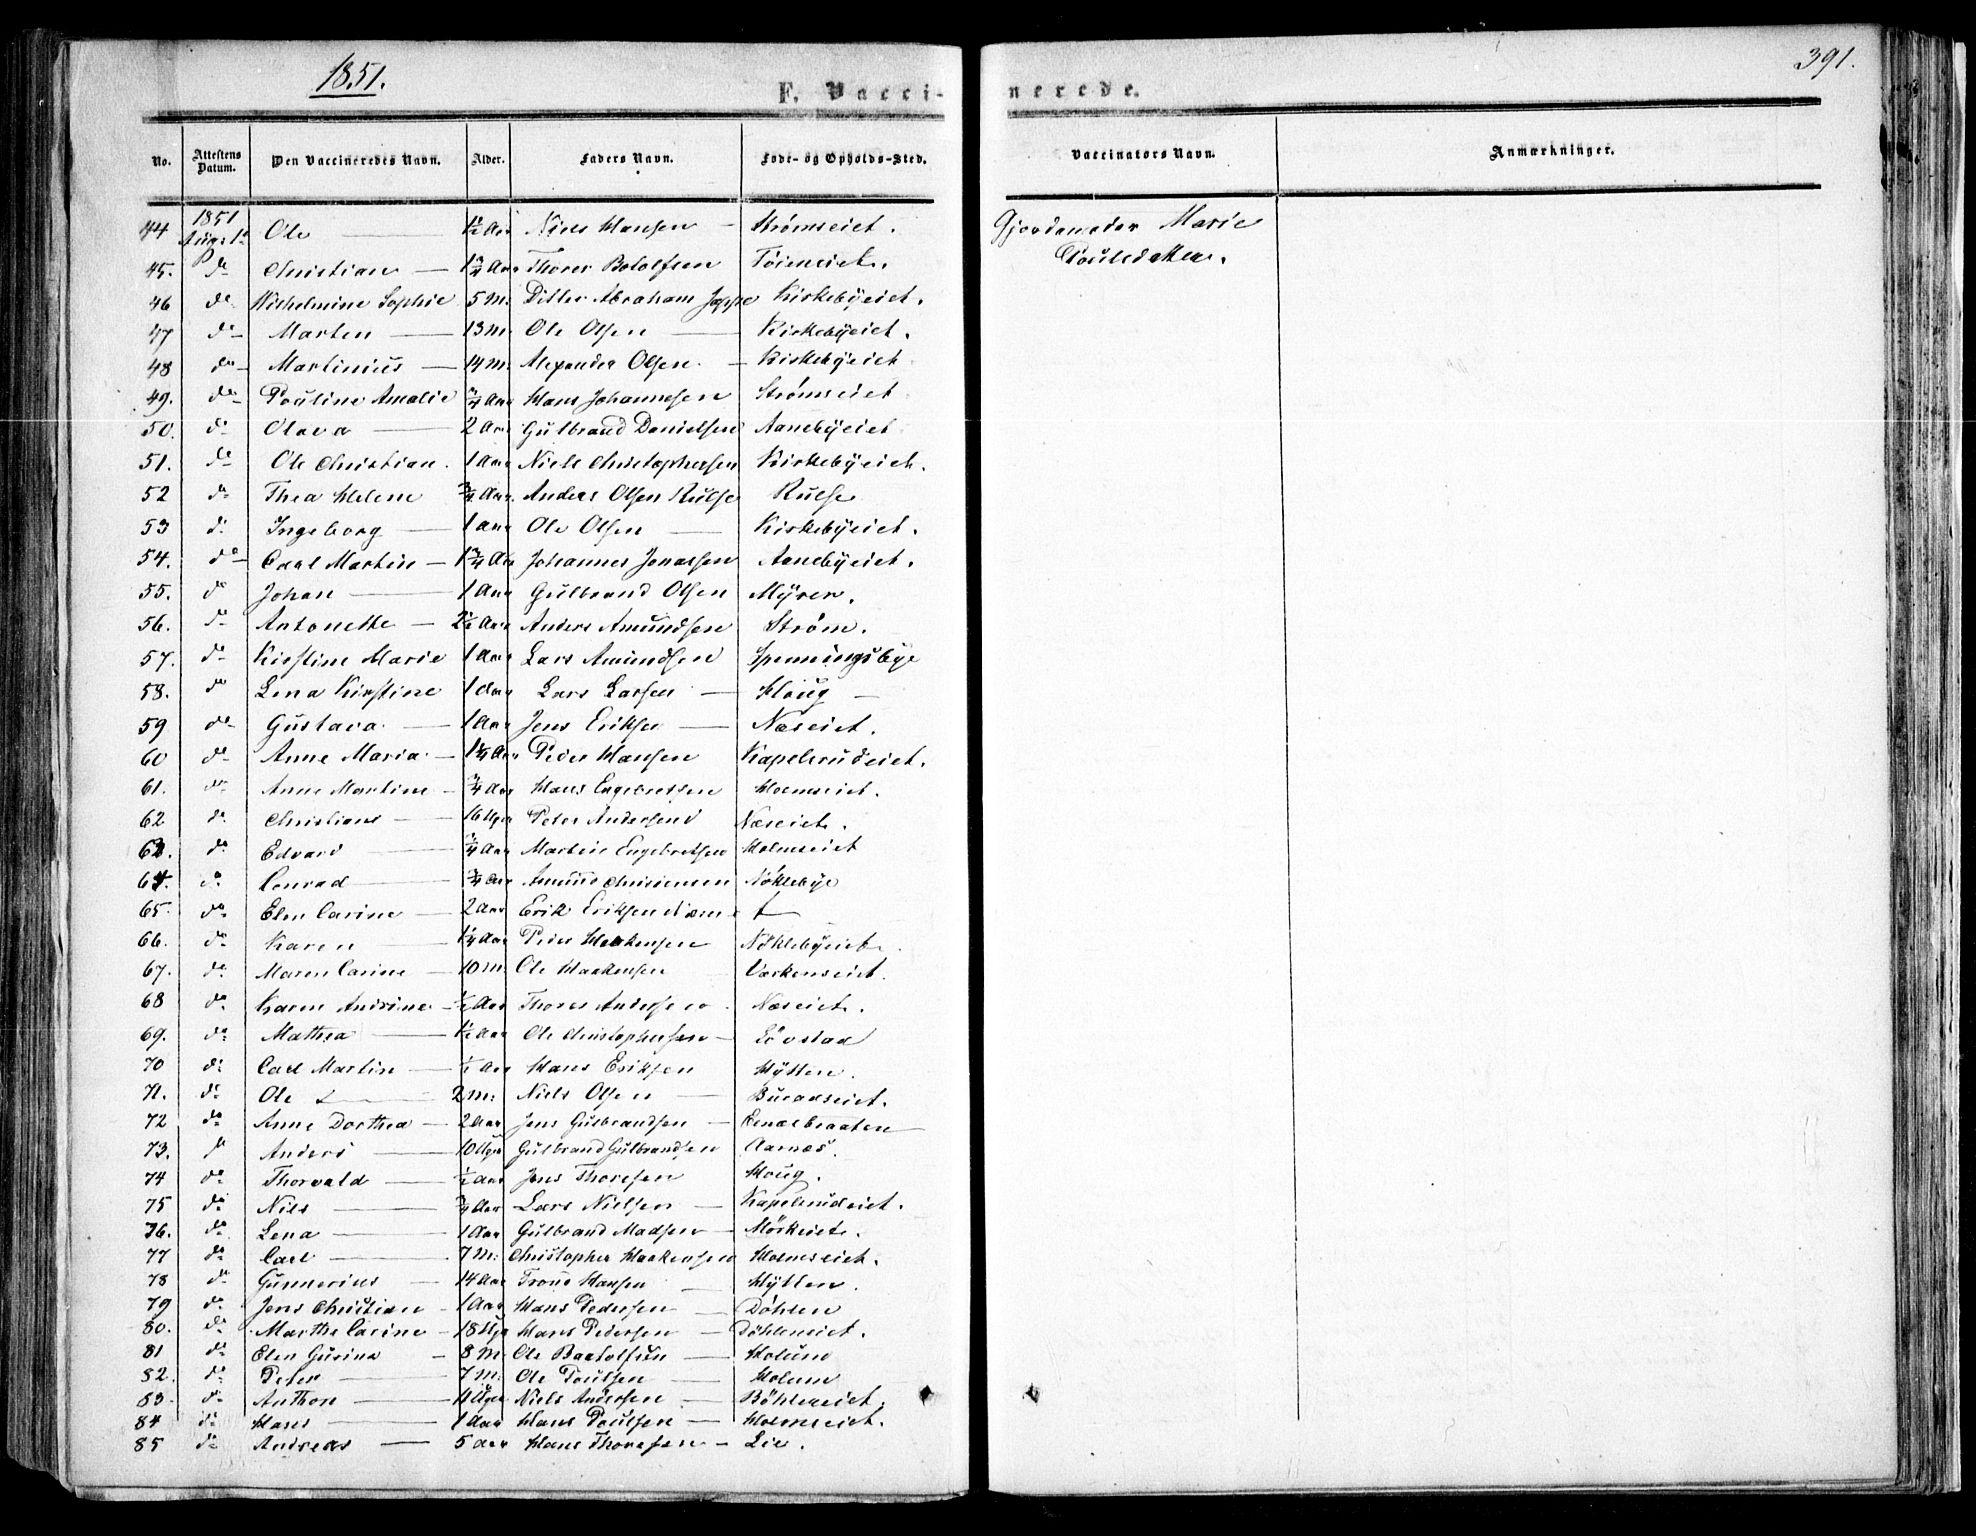 1851.
F. Vacci-
nerede.
391.
No. Attestens Datum. Den Vaccineredes Navn. Alder. Faders Navn. Føde- og Opholds-Sted. Vaccinators Navn. Anmærkninger.
44 1851 Aug. Ole — 1½ Aar Niels Hansen — Strømseiet. Gjordemoder Marie
45. do Christian — 1¾ Aar Thorer Bololfsen Töieneiet. Poulsdatter.
46 do Wilhelmine Sophie 5 M: Ditlev Abraham Jeppe Kirkebyeiet.
47 do Marten — 13 M: Ole Olsen — Kirkebyeiet.
48 do Martinius — 14 M: Alexander Olsen — Kirkebyeiet
49. do Pouline Amalie ¾ Aar Hans Johannesen Strømseiet
50. do Olava — 2 Aar Gulbrand Danielsen Aanebyeiet
51. do Ole Christian. 1 Aar Niels Christophersen Kirkebyeiet.
52 do Thea Helene ¾ Aar. Anders Olsen Rulse Rulse
53 do Ingeborg — 1 aar Ole Olsen — Kirkebyeiet.
54. do Carl Martin — 1¾ Aar Johannes Jonassen Aanebyeiet.
55. do Johan — 1 Aar Gulbrand Olsen Myrer.
56. do Antonette — 2½ Aar Anders Amundsen Strøm.
57. do Kirstine Marie 1 Aar Lars Amundsen Spenningsbye
58. do Lena Kirstine 1 Aar Lars Larsen — Houg —
59 do Gustava — 1 Aar Jens Eriksen — Næseiet.
60 do Anne Maria — 1¼ Aar Peder Hansen Kapelsrudeiet.
61. do Anne Martine — ¾ Aar Hans Engebretsen Holmseiet.
62 do Christiane — 16 Uger Peter Andersen Næseiet.
63. do Edvard — ¾ Aar Martin Engebretsen Holmseiet
64. do Conrad — ¾ Aar Amund Christensen Nöklebye
65. do Elen Carine — 2 Aar Erik Eriksen
66. do Karen — 1¼ Aar Peder Haakensen Nöklebyeiet
67. do Maren Carine — 10 M: Ole Haakensen Værkenseiet.
68 do Karen Andrine — ½ Aar Thores Andersen Næseiet.
69. do Mathea — 1½ Aar Ole Christophersen — Lövstad
70 do Carl Martin — ½ Aar Hans Eriksen Hytten.
71. do Ole — 2 M: Niels Olsen — Bureaseiet.
72 do Anne Dorthea — 2 Aar Jens Gulbrandsen —
73. do Anders — 10 Uger Gulbrand Gulbrandsen Aarnæs.
74 do Thorvald — ½ Aar Jens Thoresen Houg.
75 do Nils — ¾ Aar Lars Nielsen — Kapelsrudeiet.
76. do Lena — 1 Aar Gulbrand Madsen — Mörkeiet.
77 do Carl — 7 M: Christopher Haakensen Holmseiet.
78 do Gunnerius — 14 Aar Trond Hansen — Hytten.
79 do Jens Christian — 1 Aar Hans Pedersen — Döhlen
80. do Marthe Carine — 18 Uger Hans Pedersen — Döhleneiet.
81 do Elen Gurine — 8 M. Ole Bartolfsen — Holum
82. do Peter — 7 M: Ole Poulsen — Holum
83. do Anthon — 11 Uger Niels Andersen — Böhlereiet.
84 do Hans — 1 Aar Hans Poulsen — Holmseiet.
85 do Andreas — 5 aar Hans Thoresen — Lie.